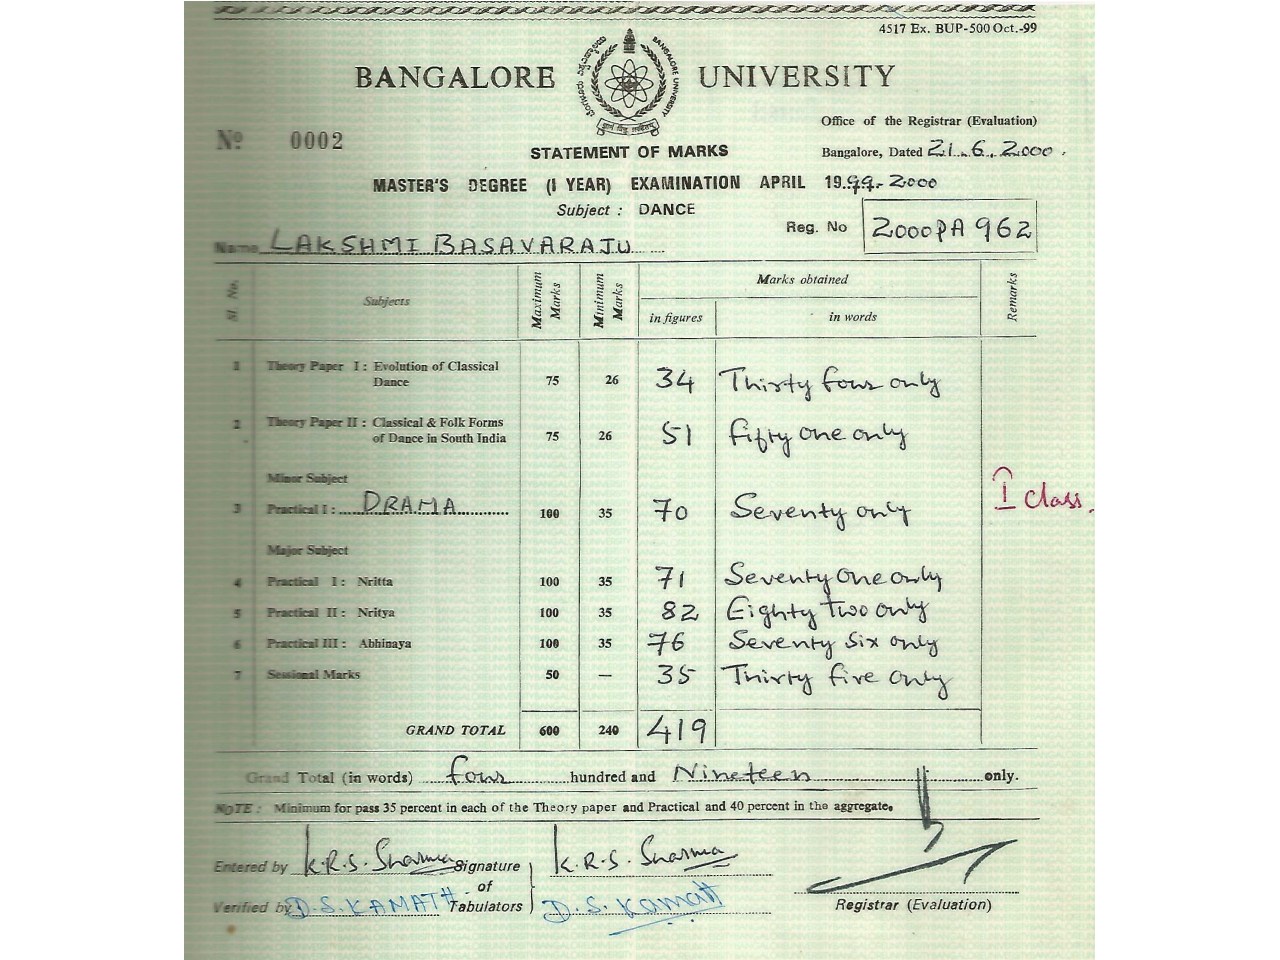 4517 Ex. BUP-500 Oct.-99
BANGALORE UNIVERSITY
BANGALORE UNIVERSITY
Office of the Registrar (Evaluation)
No 0002
STATEMENT OF MARKS
Bangalore, Dated 21.6.2000.
MASTER'S DEGREE (I YEAR) EXAMINATION APRIL 1999-2000
Subject : DANCE
Reg. No 2000PA962
Name LAKSHMI BASAVARAJU
Sl No. Subjects Maximum Marks Minimum Marks Marks obtained Remarks
in figures in words
1 Theory Paper I : Evolution of Classical
Dance 75 26 34 Thirty four only
2 Theory Paper II : Classical & Folk Forms
of Dance in South India 75 26 51 Fifty one only
Minor Subject
3 Practical I : DRAMA 100 35 70 Seventy only
I class.
Major Subject
4 Practical I : Nritta 100 35 71 Seventy one only
5 Practical II : Nritya 100 35 82 Eighty two only
6 Practical III : Abhinaya 100 35 76 Seventy six only
7 Sessional Marks 50 — 35 Thirty five only
GRAND TOTAL 600 240 419
Grand Total (in words) four hundred and Nineteen only.
NOTE : Minimum for pass 35 percent in each of the Theory paper and Practical and 40 percent in the aggregate.
Entered by K.R.S. Sharma Signature K.R.S. Sharma
of
Verified by D.S. KAMATH Tabulators D.S. Kamath
Registrar (Evaluation)